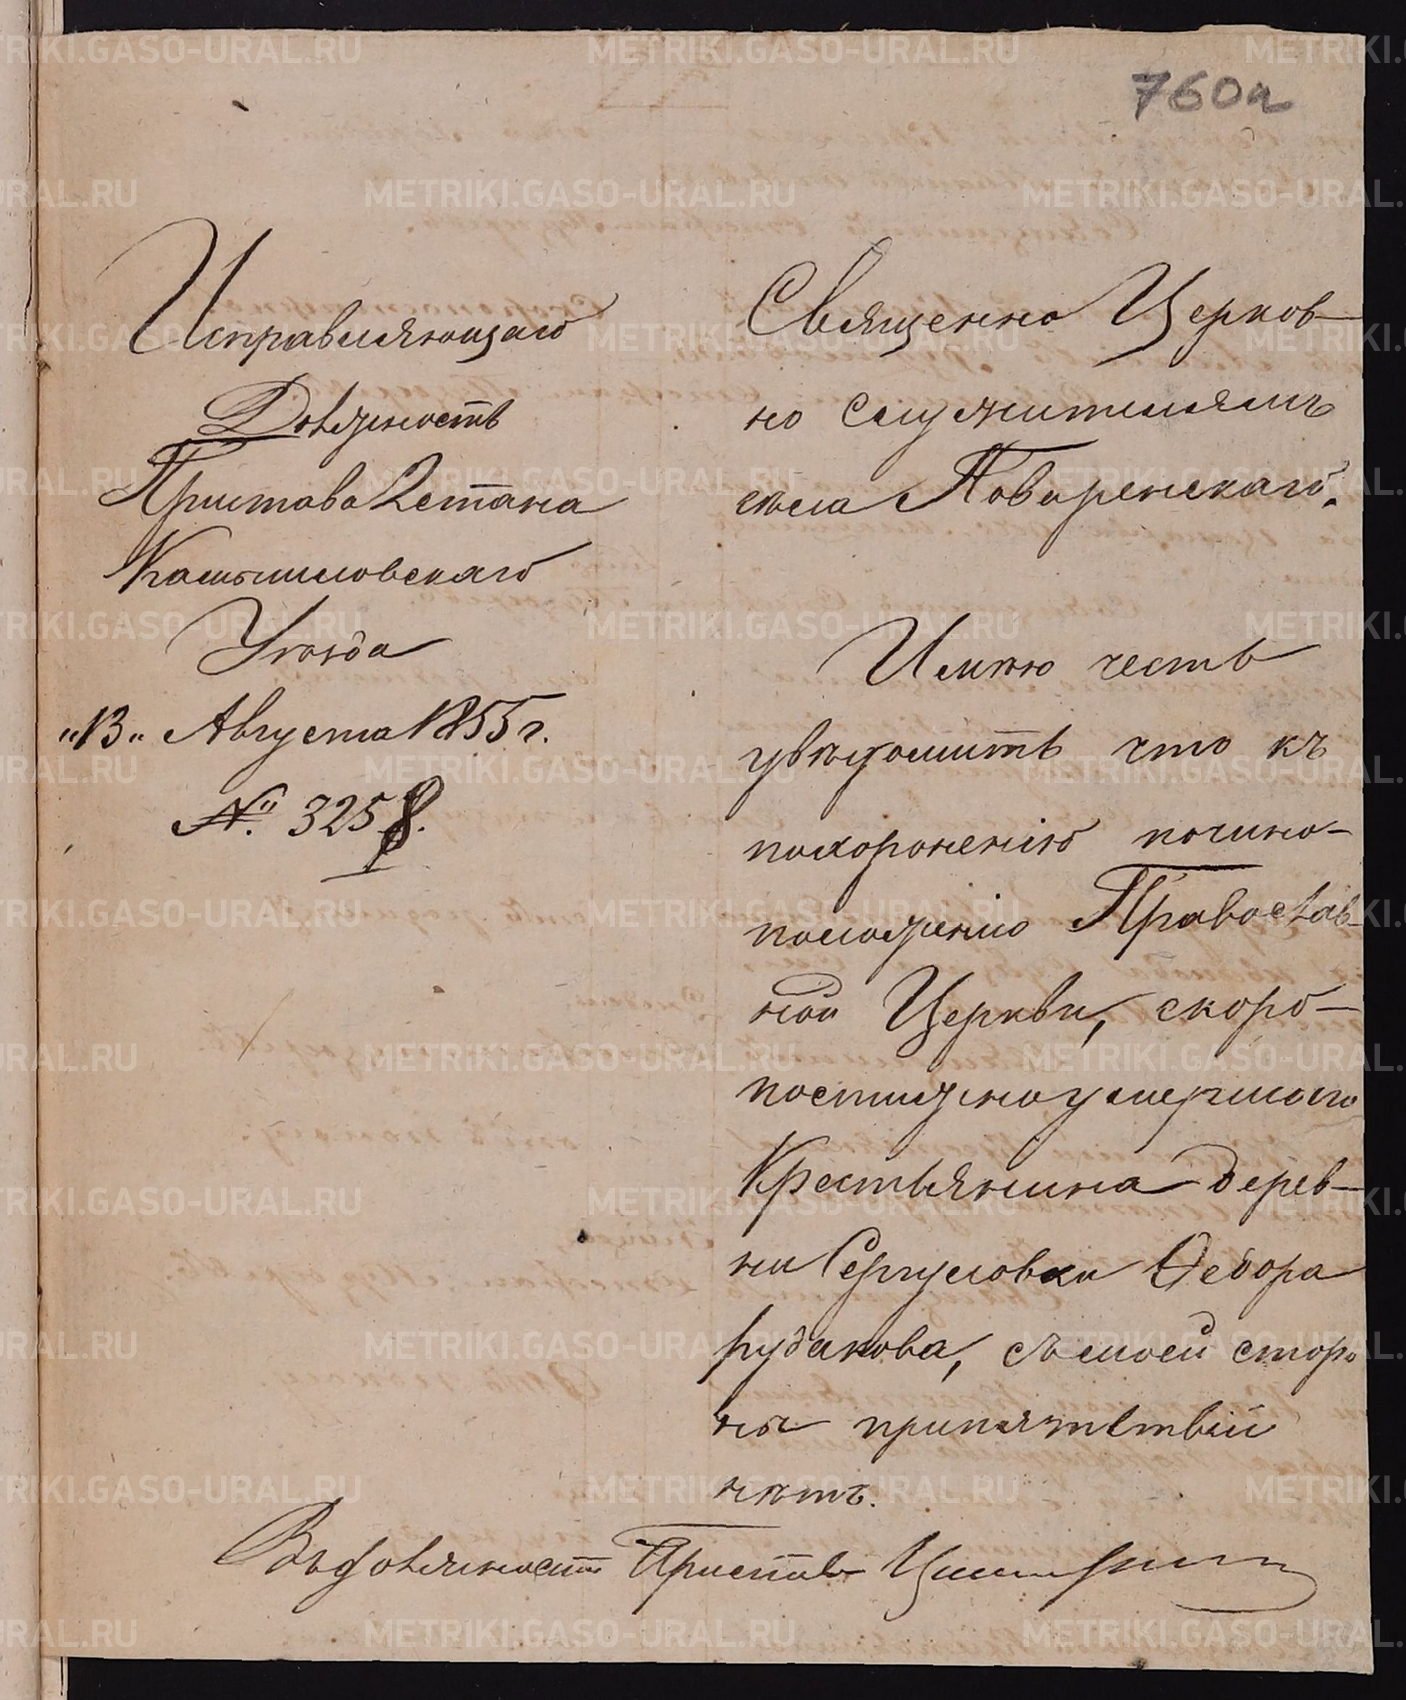 760а
Исправляющаго
Должность
Пристава 2 стана
Камышловскаго
Уѣзда
"13" Августа 1855 г.
№ 3258.
Священно Церков-
но служителямъ
села Поваренскаго.
Имѣю честь
увѣдомить что къ
похороненію по чино-
положенію Православ-
ной Церкви, скоро-
постижно умершаго
Крестьянина дерев-
ни Сергуловки Ѳедора
Рудакова, съ моей сторо
ны припятствій
нѣтъ.
Въ должност Пристав
METRIKI.GASO-URAL.RU